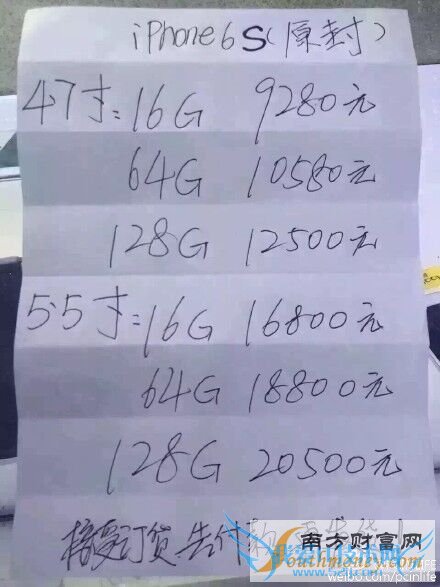 iPhone6S(原封)
4.7寸:16G 9280元
64G 10580元
128G 12500元
5.5寸:16G 16800元
64G 18800元
128G 20500元
接受订货 先付款
南方财富网
outhmoney.com
weibo.com/pcinlife